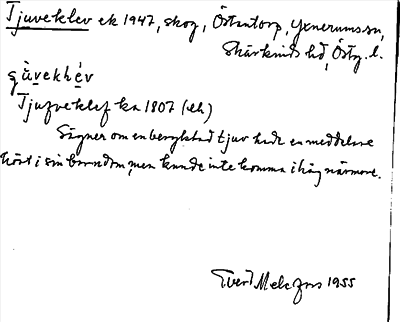 Tjuveklev ek 1947, skog, Östantorp, Yxnerums sn,
Skärkinds hd, Östg. l.
Tjufveklef ka 1807 (eh)
Sägner om en bergtagen tjuv hade en meddelare
hört i sin barndom, men kunde inte komma ihåg närmare.
1955